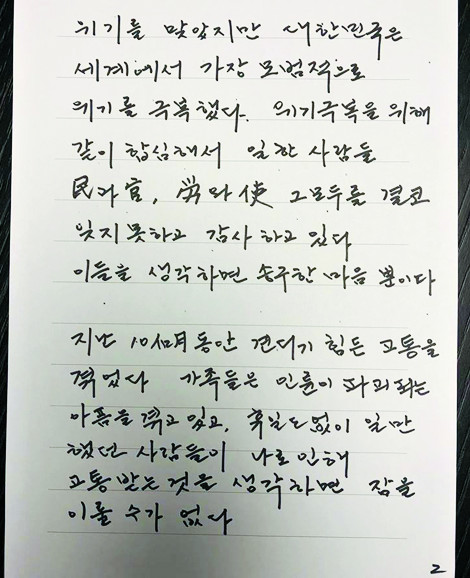 위기를 맞았지만 대한민국은
세계에서 가장 모범적으로
위기를 극복했다. 위기극복을 위해
같이 합심해서 일한 사람들
民과 官, 勞와 使 그모두를 결코
잊지못하고 감사하고 있다
이들을 생각하면 송구한 마음 뿐이다
지난 10個月 동안 견디기 힘든 고통을
겪었다 가족들은 인륜이 파괴되는
아픔을 겪고 있고, 휴일도 없이 일만
했던 사람들이 나로 인해
고통 받는 것을 생각하면 잠을
이룰 수가 없다
2